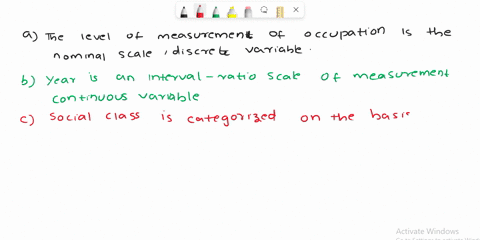 a) The level of measurement of occupation is the
nominal scale, discrete variable.
b) Year is an interval-ratio scale of measurement
continuous variable
c) Social class is categorized on the basis
Activate Windows